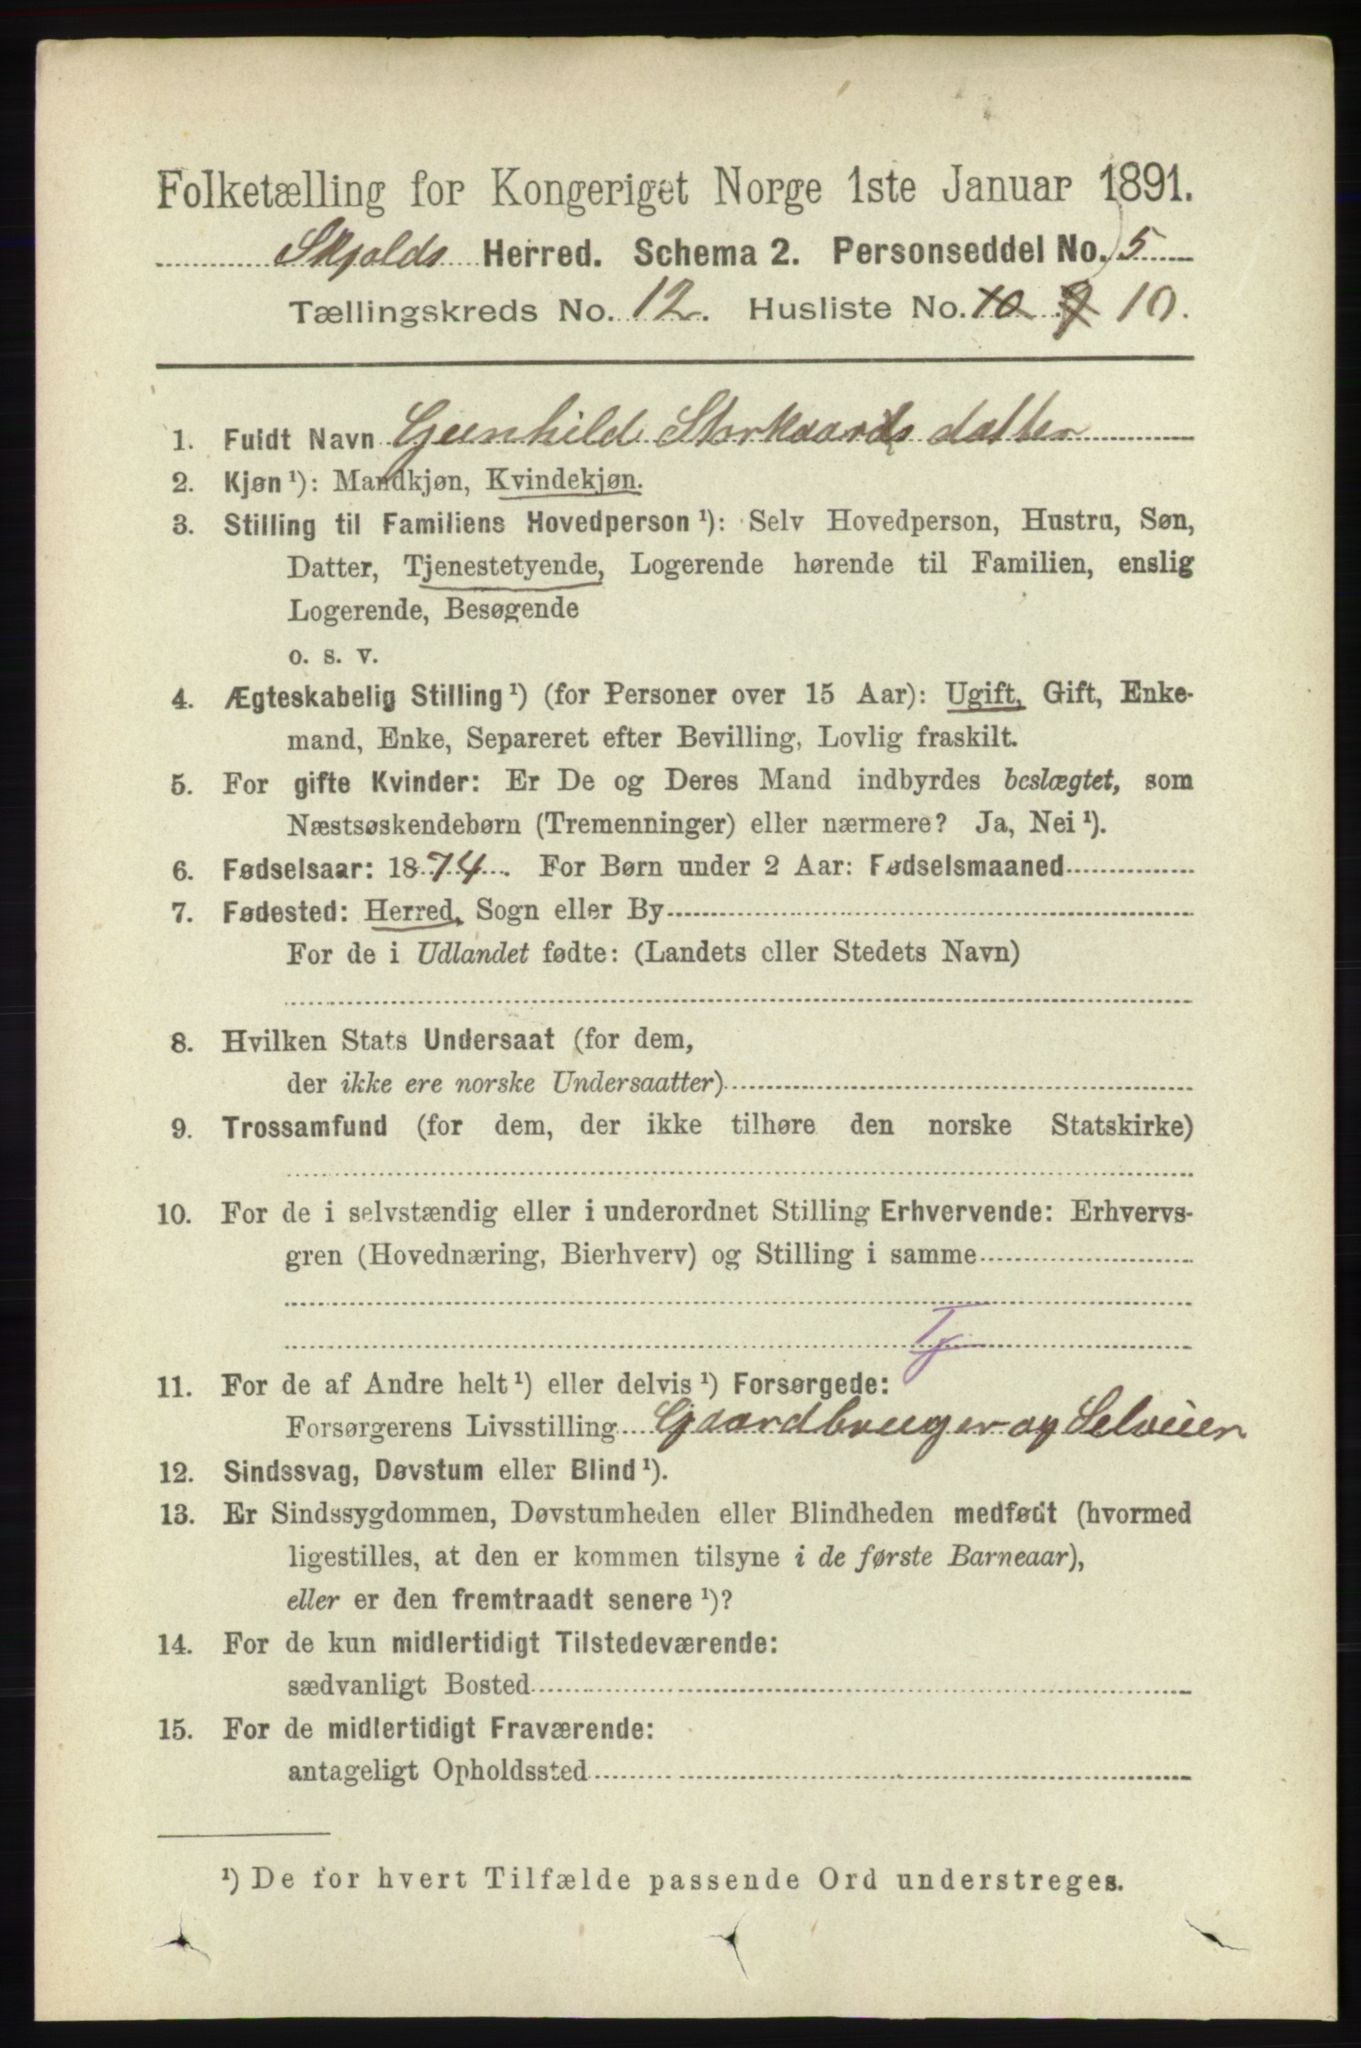 Folketælling for Kongeriget Norge 1ste Januar 1891.
Skjolds Herred. Schema 2. Personseddel No. 5
Tællingskreds No. 12. Husliste No. 10 9 10.
1. Fuldt Navn Gunhild Storkaards datter
2. Kjøn ¹): Mandkjøn, Kvindekjøn.
3. Stilling til Familiens Hovedperson ¹): Selv Hovedperson, Hustru, Søn,
Datter, Tjenestetyende, Logerende hørende til Familien, enslig
Logerende, Besøgende
o. s. v.
4. Ægteskabelig Stilling ¹) (for Personer over 15 Aar): Ugift, Gift, Enke-
mand, Enke, Separeret efter Bevilling, Lovlig fraskilt.
5. For gifte Kvinder: Er De og Deres Mand indbyrdes beslægtet, som
Næstsøskendebørn (Tremenninger) eller nærmere? Ja, Nei ¹).
6. Fødselsaar: 1874. For Børn under 2 Aar: Fødselsmaaned
7. Fødested: Herred, Sogn eller By
For de i Udlandet fødte: (Landets eller Stedets Navn)
8. Hvilken Stats Undersaat (for dem,
der ikke ere norske Undersaatter)
9. Trossamfund (for dem, der ikke tilhøre den norske Statskirke)
10. For de i selvstændig eller i underordnet Stilling Erhvervende: Erhvervs-
gren (Hovednæring, Bierhverv) og Stilling i samme
Tj
11. For de af Andre helt ¹) eller delvis ¹) Forsørgede:
Forsørgerens Livsstilling Gaardbruger og Selveier
12. Sindssvag, Døvstum eller Blind ¹).
13. Er Sindssygdommen, Døvstumheden eller Blindheden medfødt (hvormed
ligestilles, at den er kommen tilsyne i de første Barneaar),
eller er den fremtraadt senere ¹)?
14. For de kun midlertidigt Tilstedeværende:
sædvanligt Bosted
15. For de midlertidigt Fraværende:
antageligt Opholdssted
¹) De for hvert Tilfælde passende Ord understreges.